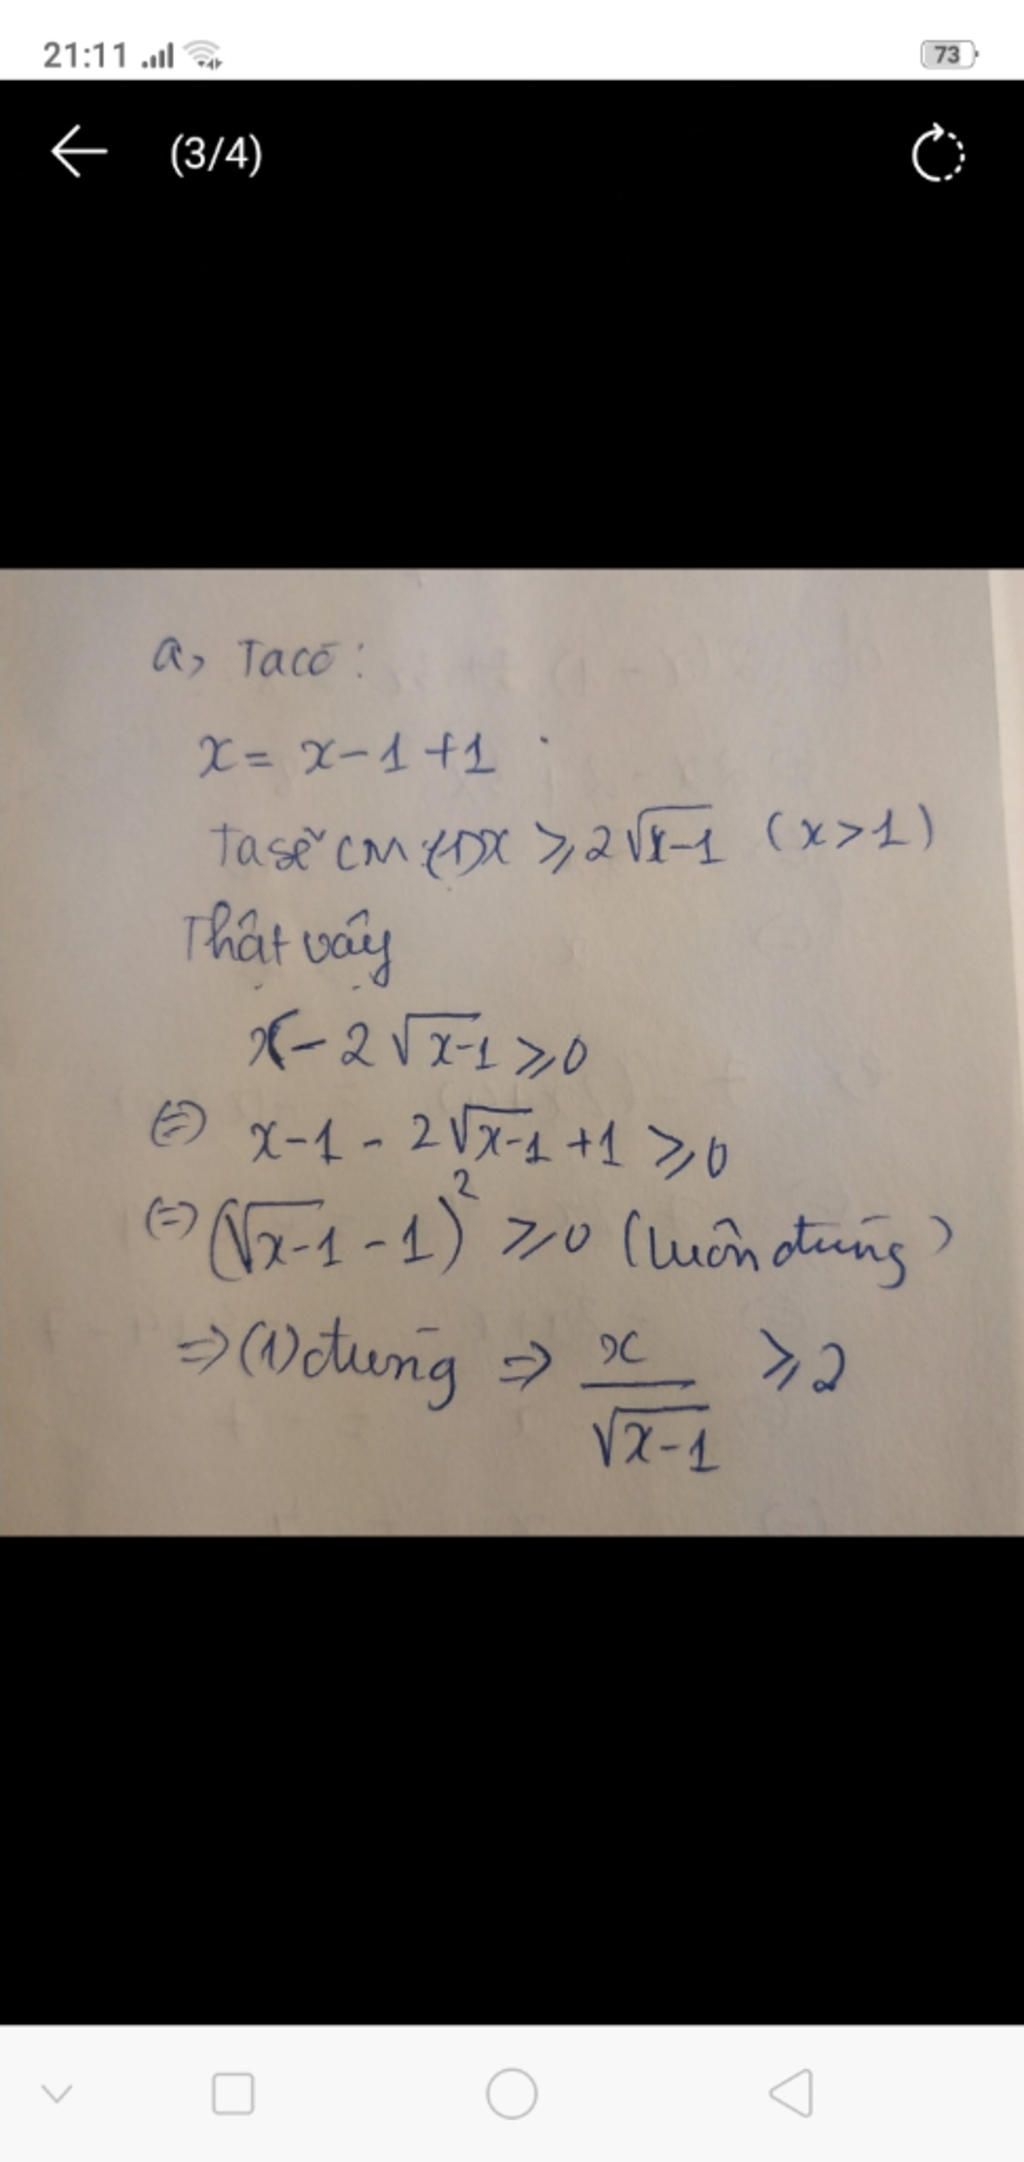 21:11
73
(3/4)
a, Ta có:
x = x-1+1
Ta sẽ CM (1) x ⩾ 2√x-1 (x>1)
Thật vậy
x - 2√x-1 ⩾ 0
(=) x-1 - 2√x-1 +1 ⩾ 0
(=) (√x-1 - 1)² ⩾ 0 (luôn đúng)
=> (1) đúng => x/√x-1 ⩾ 2